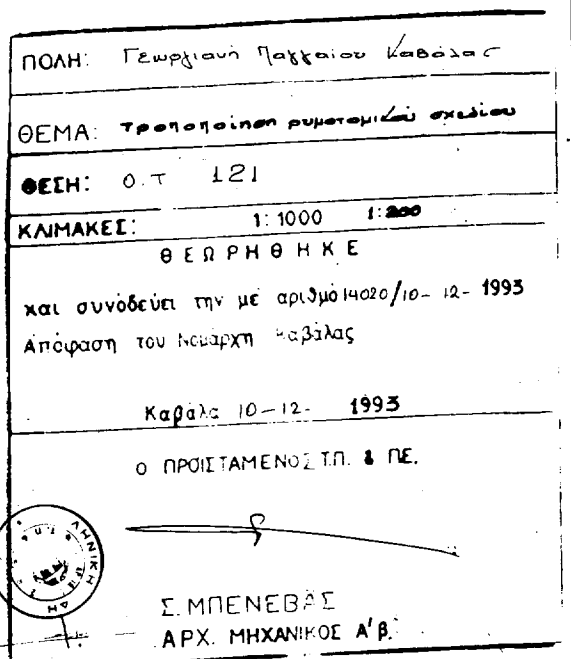 ΠΟΛΗ: Γεωργιανή Παγγαίου Καβάλας
ΘΕΜΑ: Τροποποίηση ρυμοτομικού σχεδίου
ΘΕΣΗ: Ο.Τ 121
ΚΛΙΜΑΚΕΣ: 1:1000 1:200
ΘΕΩΡΗΘΗΚΕ
και συνόδεύει την μέ αριθμό 14020/10-12-1993
Απόφαση του Νομάρχη Καβάλας
Καβάλα 10-12- 1993
Ο ΠΡΟΪΣΤΑΜΕΝΟΣ Τ.Π. & ΠΕ.
Σ. ΜΠΕΝΕΒΑΣ
ΑΡΧ. ΜΗΧΑΝΙΚΟΣ Α'β.